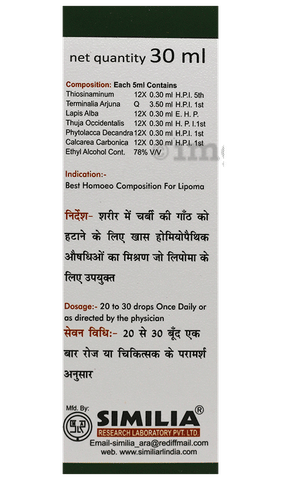 net quantity 30 ml
Composition: Each 5ml Contains
Thiosinaminum 12X 0.30 ml H.P.I. 5th
Terminalia Arjuna Q 3.50 ml H.P.I. 1st
Lapis Alba 12X 0.30 ml E. H. P.
Thuja Occidentalis 12X 0.30 ml H. P.I.1st
Phytolacca Decandra 12X 0.30 ml H.P.I. 1st
Calcarea Carbonica 12X 0.30 ml H.P.I. 1st
Ethyl Alcohol Cont. 78% V/V
Indication:-
Best Homoeo Composition For Lipoma
निर्देश- शरीर में चर्बी की गाँठ को
हटाने के लिए खास होमियोपैथिक
औषधिओं का मिश्रण जो लिपोमा के
लिए उपयुक्त
Dosage:- 20 to 30 drops Once Daily or
as directed by the physician
सेवन विधि:- 20 से 30 बूँद एक
बार रोज या चिकित्सक के परामर्श
अनुसार
Mfd. By:
SIMILIA®
RESEARCH LABORATORY PVT. LTD
Email-similia_ara@rediffmail.com
web. www.similiarlindia.com